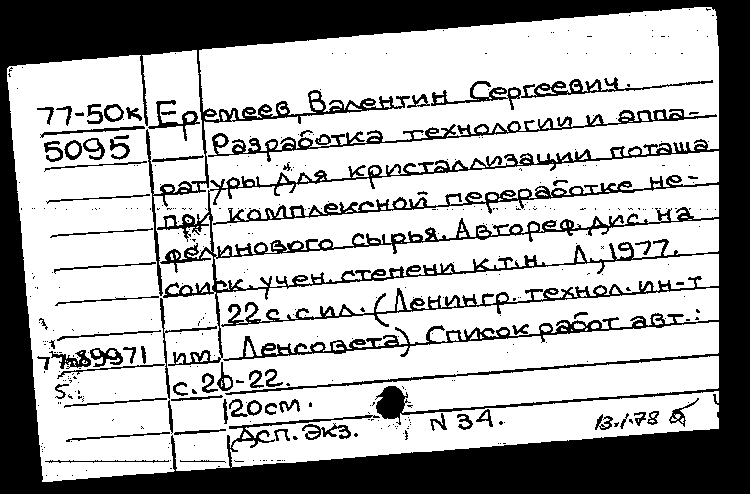 77-50к Еремеев, Валентин Сергеевич.
5095 Разработка технологии и аппа-
ратуры для кристаллизации поташа
при комплексной переработке не-
фелинового сырья. Автореф. дис. на
соиск. учен. степени к.т.н. Л., 1977.
22 с. с ил. (Ленингр. технол. ин-т
им. Ленсовета) Список работ авт.:
с. 20-22.
20см.
Дсп. Экз. N 34. 13.1.78